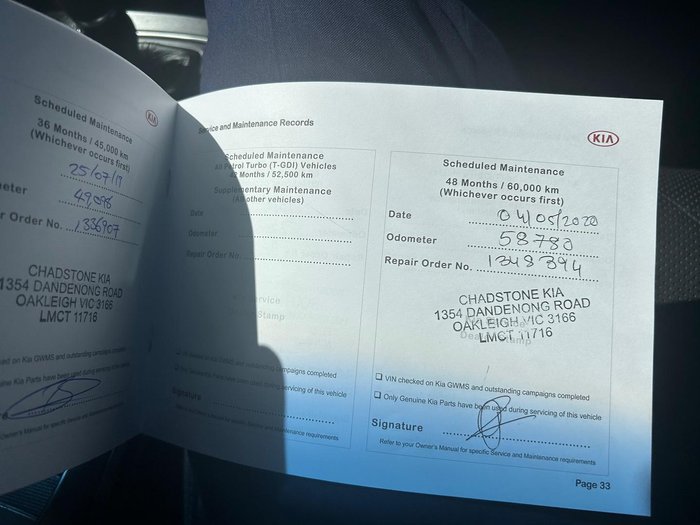 Scheduled Maintenance
36 Months / 45,000 km
(Whichever occurs first)
25/07/17
meter 49,098
r Order No. 1336907
CHADSTONE KIA
1354 DANDENONG ROAD
OAKLEIGH VIC 3166
LMCT 11716
ked on Kia GWMS and outstanding campaigns completed
uine Kia Parts have been used during servicing of this vehicle
Owner's Manual for specific Service and Maintenance requirements
KIA
Service and Maintenance Records
Scheduled Maintenance
All Petrol Turbo (T-GDI) Vehicles
42 Months / 52,500 km
Supplementary Maintenance
(All other vehicles)
Date
Odometer
Repair Order No.
Service
Stamp
VIN checked on Kia GWMS and outstanding campaigns completed
Only Genuine Kia Parts have been used during servicing of this vehicle
Signature
Refer to your Owner's Manual for specific Service and Maintenance requirements
KIA
Scheduled Maintenance
48 Months / 60,000 km
(Whichever occurs first)
Date 04/05/2020
Odometer 58780
Repair Order No. 1348394
CHADSTONE KIA
1354 DANDENONG ROAD
OAKLEIGH VIC 3166
LMCT 11716
VIN checked on Kia GWMS and outstanding campaigns completed
Only Genuine Kia Parts have been used during servicing of this vehicle
Signature
Refer to your Owner's Manual for specific Service and Maintenance requirements
Page 33